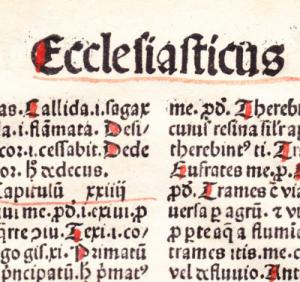 Ecclesiasticus
as. Callida.i.sagax
la.i.flãmata. Desi/
cor.i.cessabit. Dede
cor. h̃ dedecus.
Capitulũ xxiiij
ui me.p̃d.i.exiui.p
q̃rre ziu. Texi.i.co/
go gis.xi. Primatũ
p̃ncipatũ. h̃ p̃mat⁹
me. p̃d. Therebin
cuni⁹ resina silr ap
therebint⁹ ti. Tra
Eufrates me.p.
p̃d. Trames c̃ via
uersa p agrũ. ⁊ v
p pte aq̃ a flumia
trames itis.me.c
vel defluuio. An